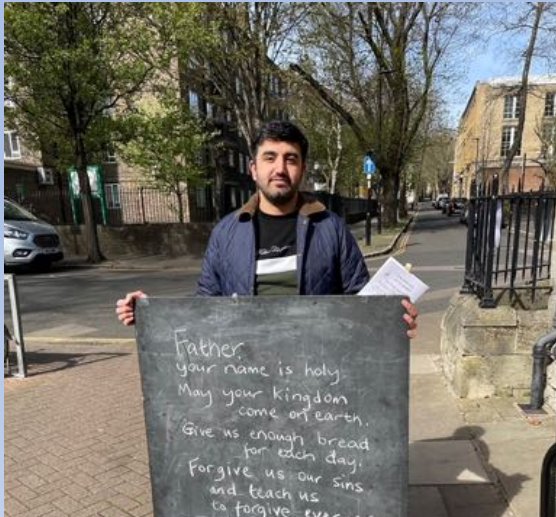 Father,
your name is holy
May your kingdom
come on earth.
Give us enough bread
for each day.
Forgive us our sins
and teach us
to forgive